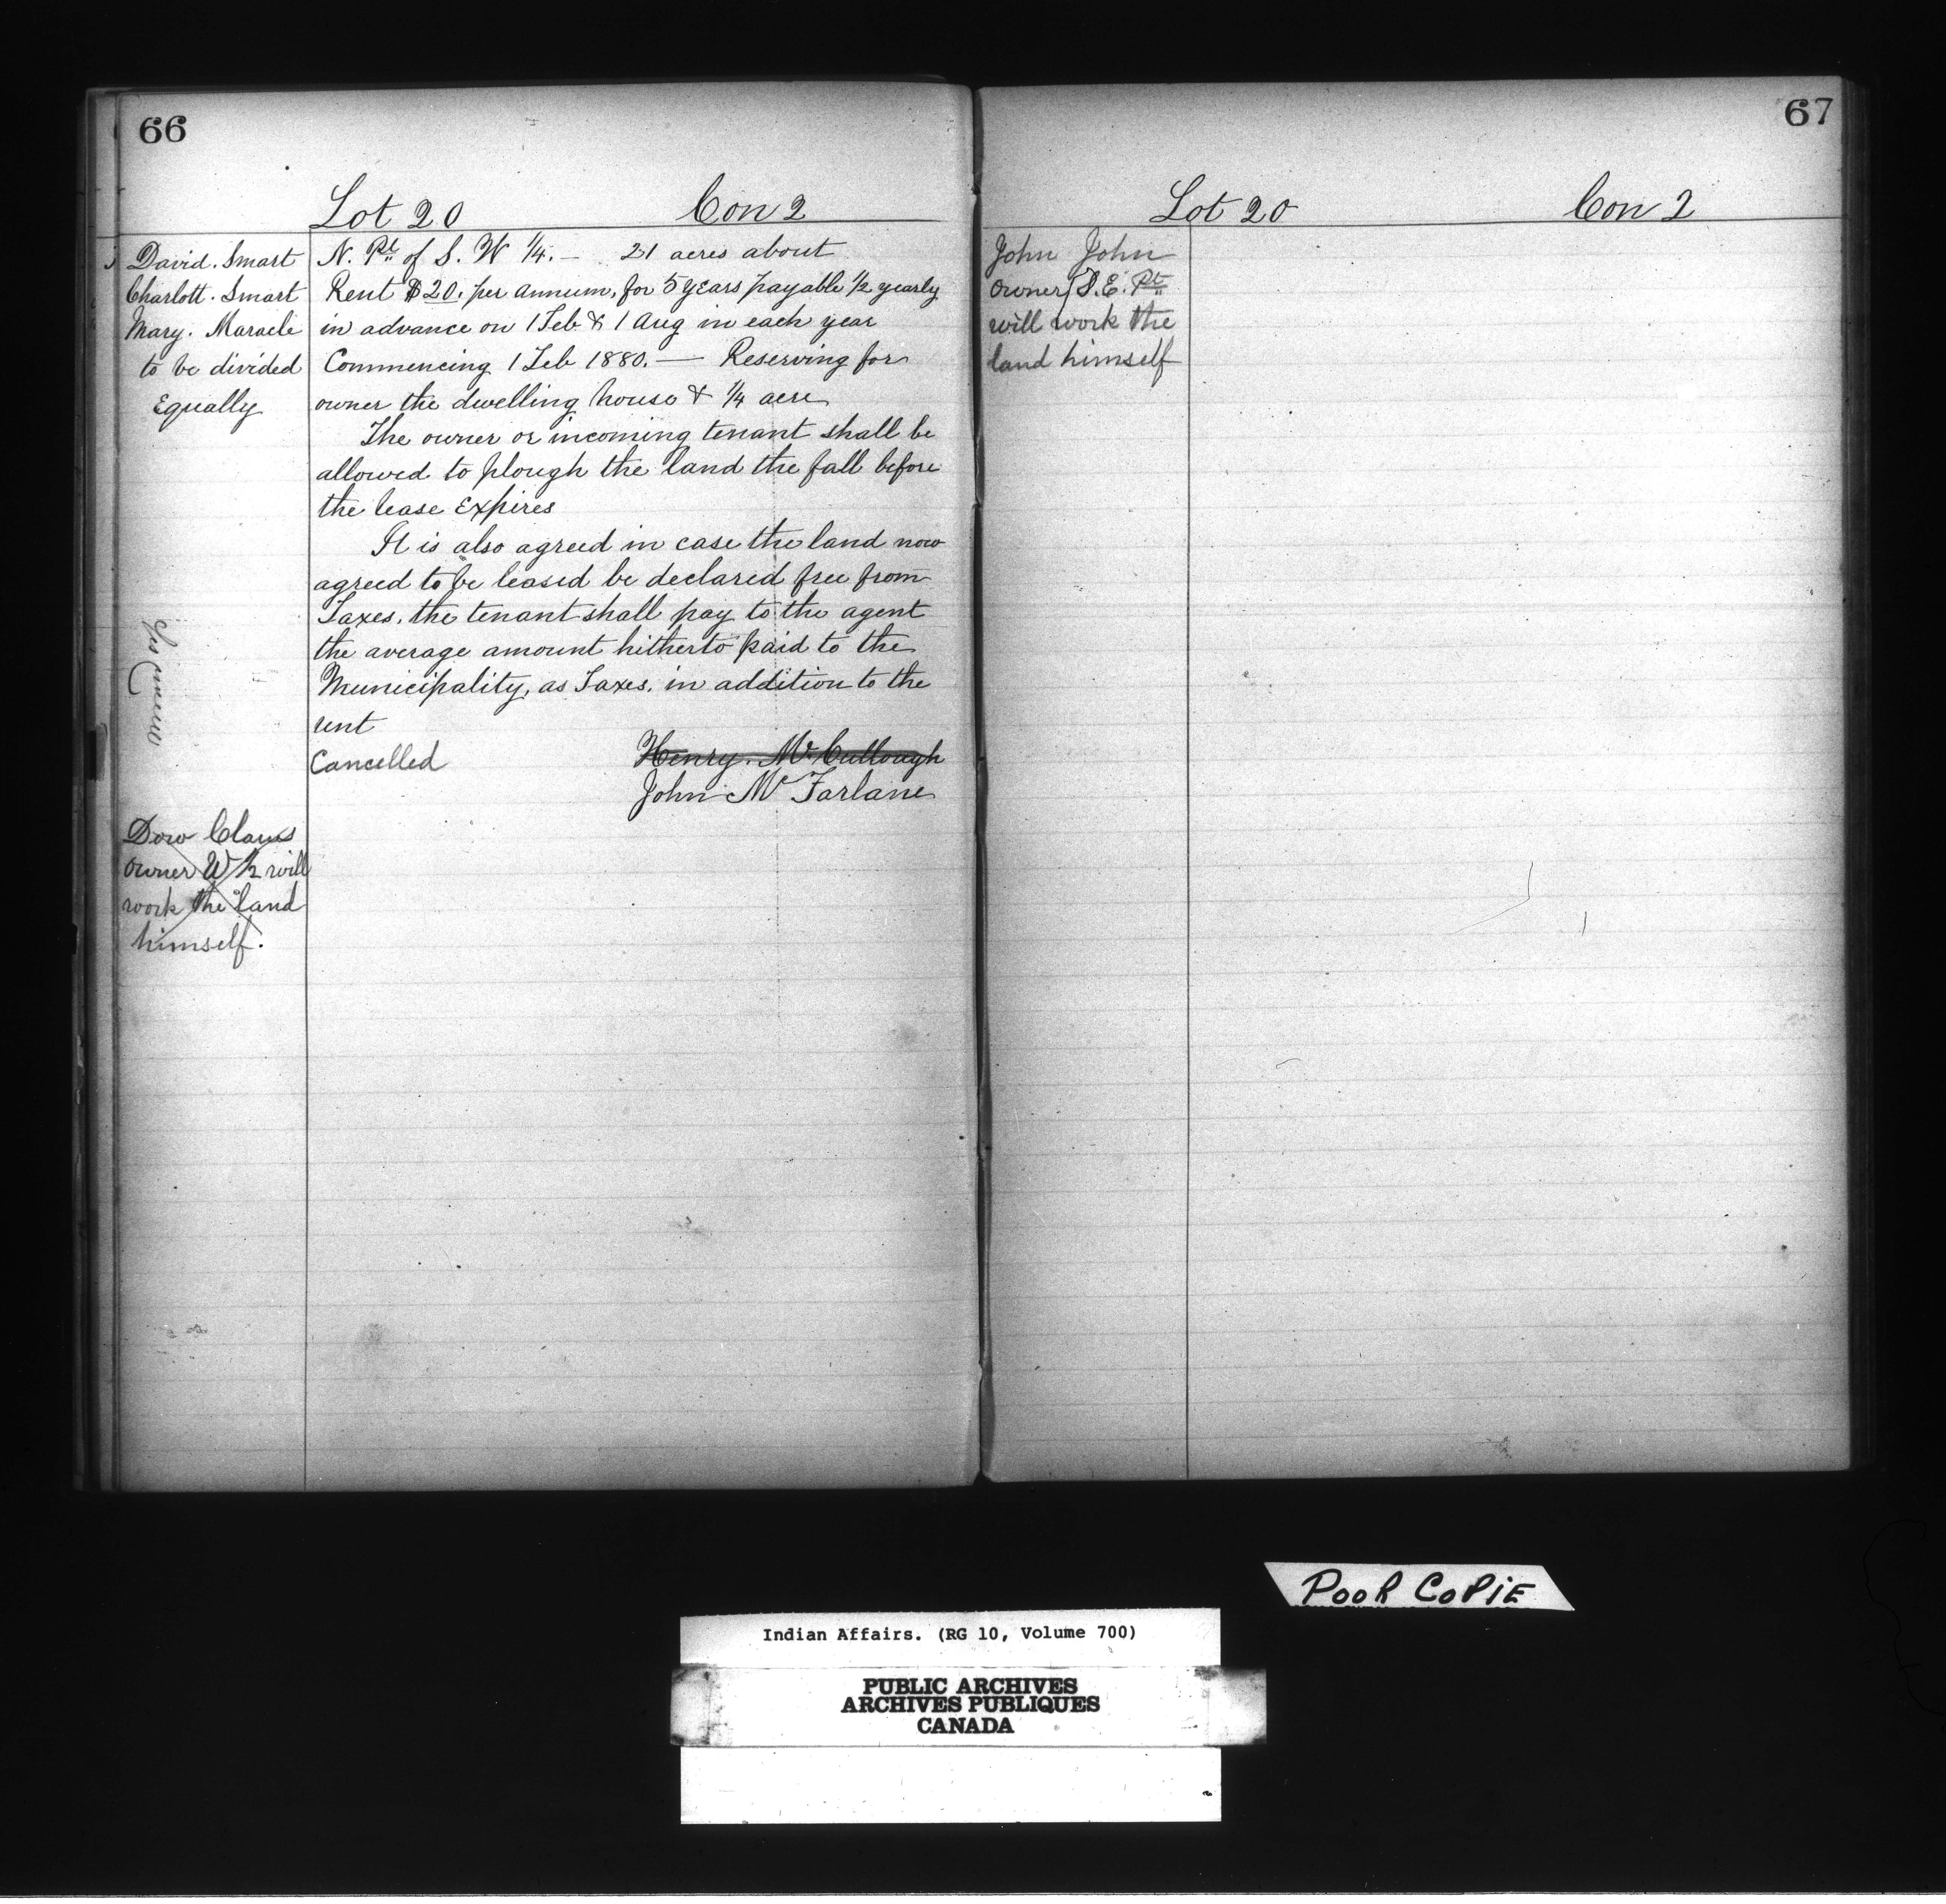 66
Lot 20 Con 2
David. Smart
Charlott. Smart
Mary. Maracle
to be divided
Equally
N. Pt. of S. W ¼. — 21 acres about
Rent $20. per annum, for 5 years payable ½ yearly
in advance on 1 Feb & 1 Aug in each year
Commencing 1 Feb 1880. — Reserving for
owner the dwelling house & ¼ acre
The owner or incoming tenant shall be
allowed to plough the land the fall before
the lease Expires
It is also agreed in case the land now
agreed to be leased be declared free from
Taxes, the tenant shall pay to the agent
the average amount hitherto paid to the
Municipality, as Taxes, in addition to the
rent
Cancelled
Henry. McCullough
John McFarlane
Dow Claus
owner W ½ will
work the land
himself.
67
Lot 20 Con 2
John John
owner S. E. Pt
will work the
land himself
POOR COPIE
Indian Affairs. (RG 10, Volume 700)
PUBLIC ARCHIVES
ARCHIVES PUBLIQUES
CANADA